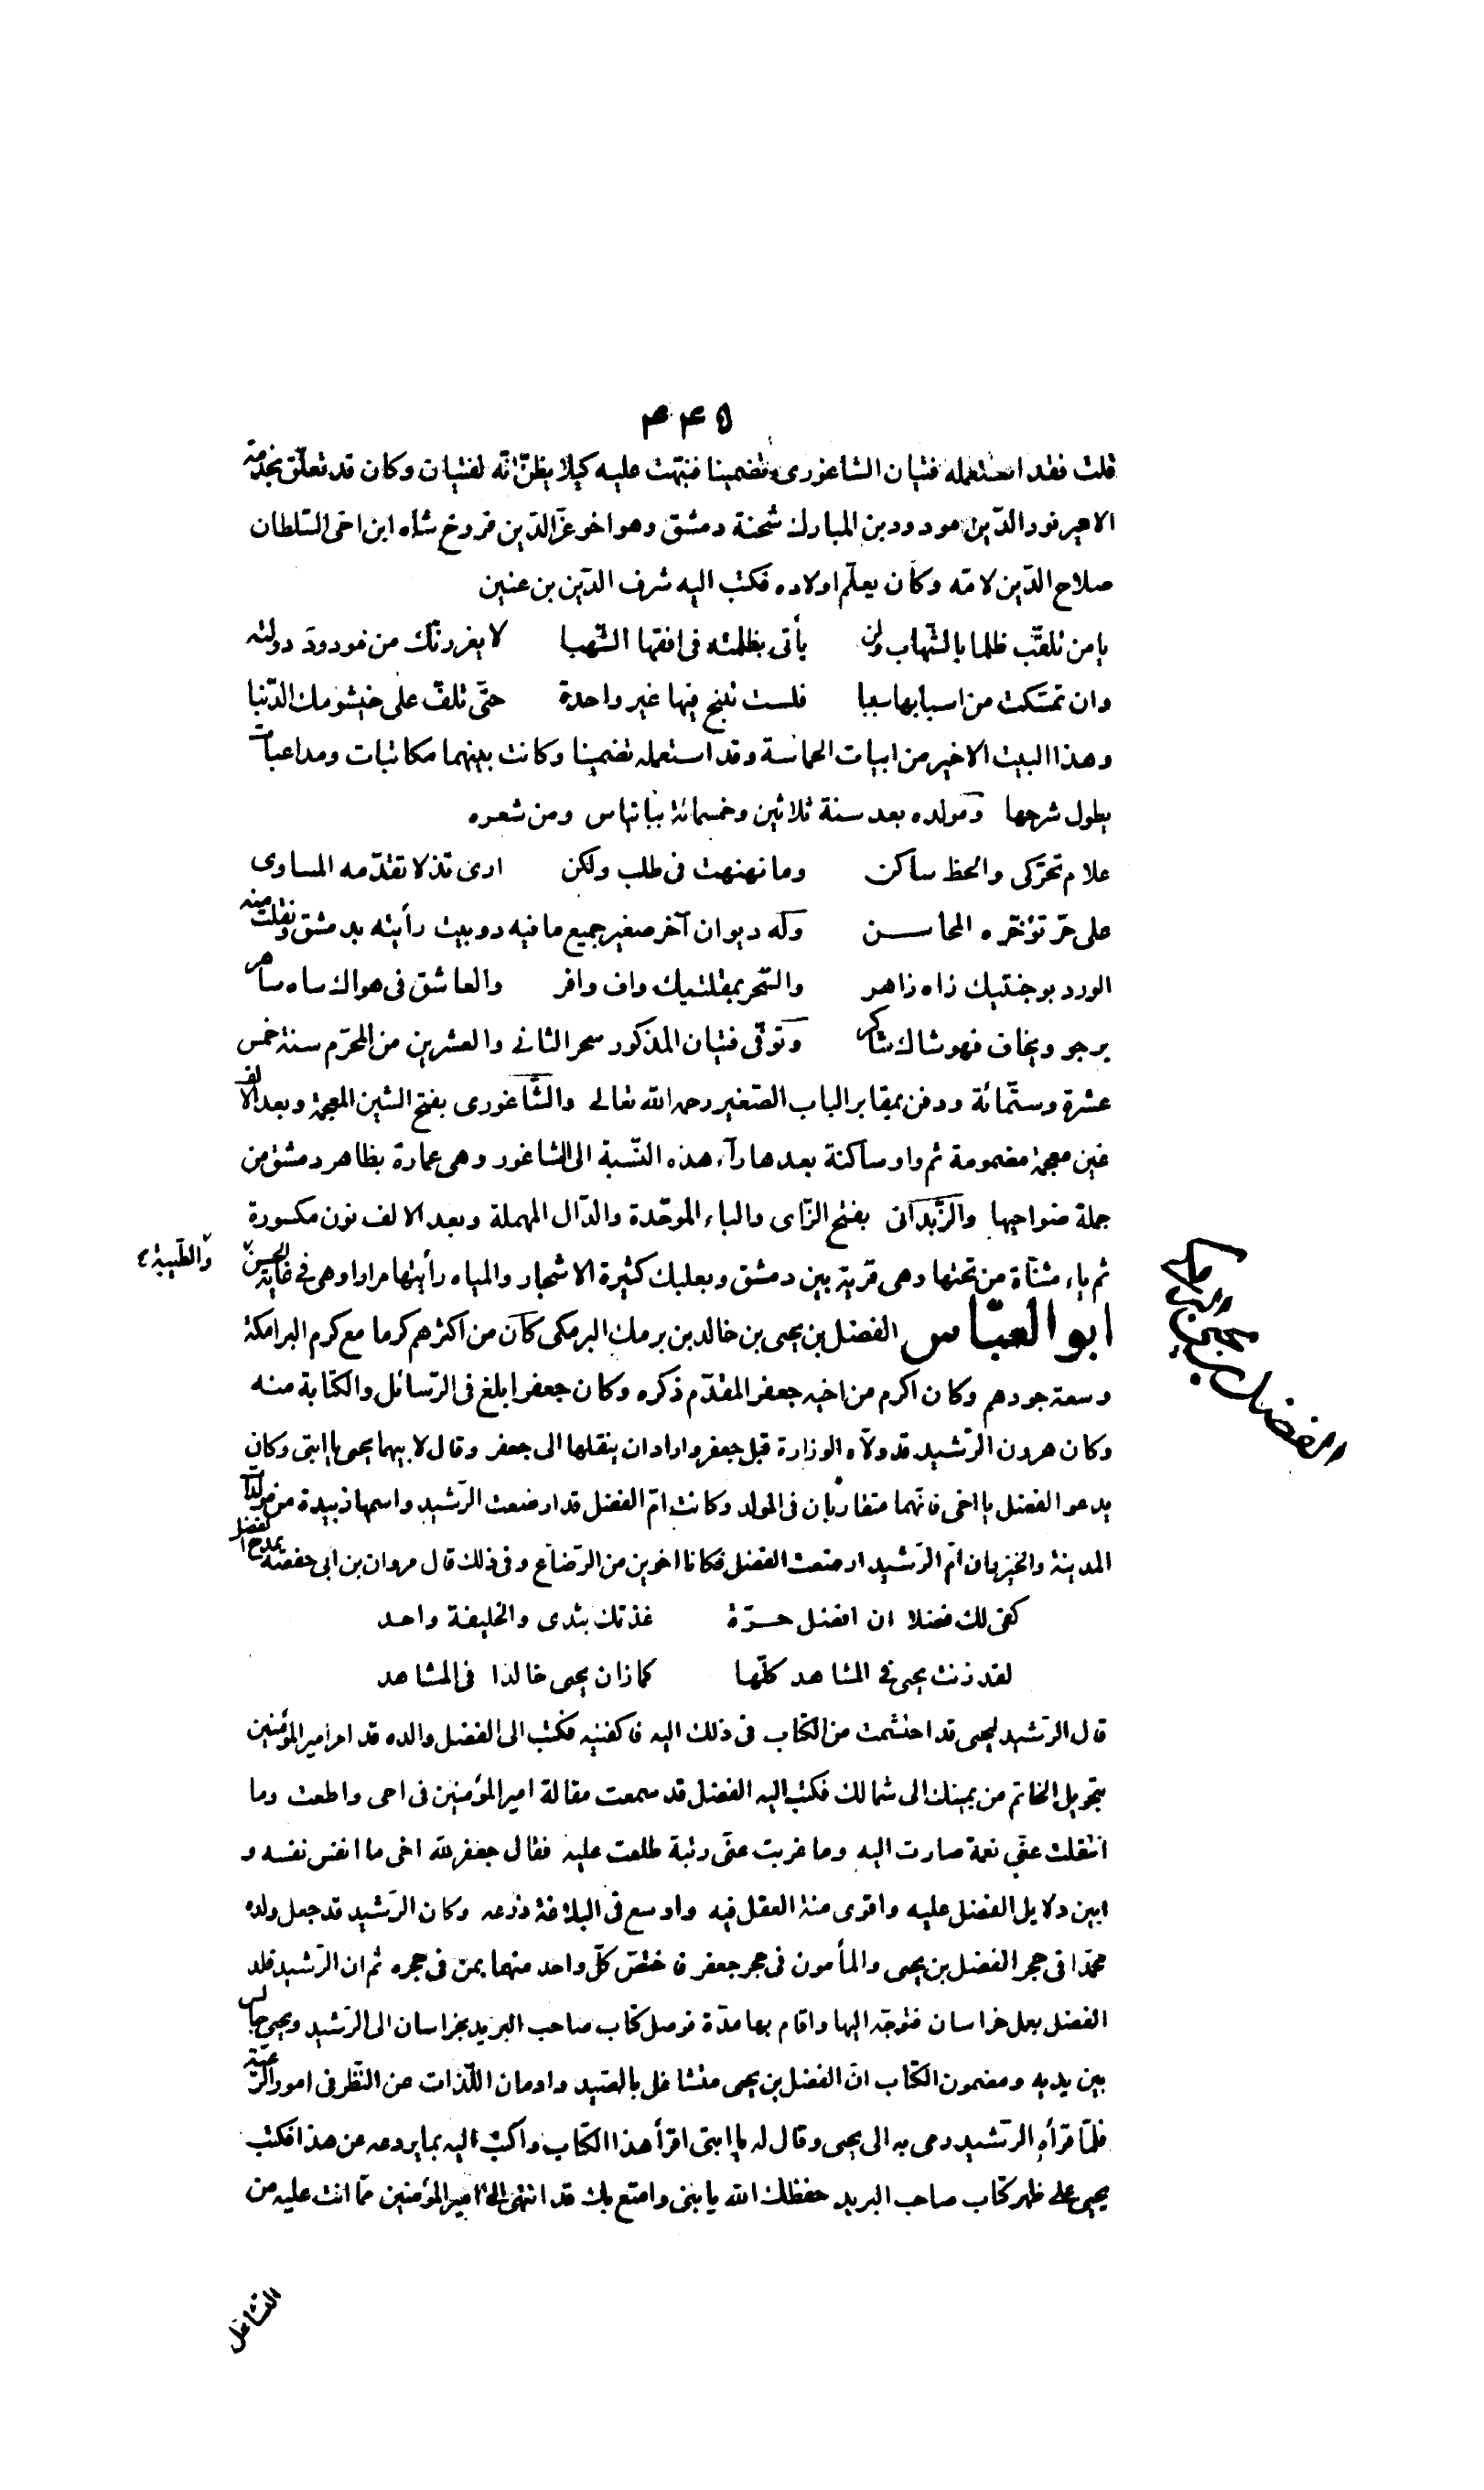 ٣٤٥
قلت فقد استعمله فتيان الشاغورى تضمينا فنبّهت عليه كيلا يظنّ انّه لفتيان وكان قد تعلّق بخدمة
الامير نور الدّين مودود بن المبارك شحنة دمشق وهو اخو عزّ الدّين فروخ شاه ابن اخى السّلطان
صلاح الدّين لامّه وكان يعلّم اولاده فكتب اليه شرف الدّين بن عنين
يا من تلقّب ظلما بالشّهاب ولن يأتى بظلمته فى افقها الشّهبا لا يغررنّك من مودود دولته
وان تمسّكت من اسبابها سببا فلست تنبح فيها غير واحدة حتّى تلفّ على خيشومك الذّنبا
وهذا البيت الاخير من ابيات الحماسة وقد استعمله تضمينا وكانت بينهما مكاتبات ومداعبات
يطول شرحها ومولده بعد سنة ثلاثين وخمسمائة ببانياس ومن شعره
علام تحرّكى والحظ ساكن وما نهنهت فى طلب ولكن ارى نذلا تقدّمه المساوى
على حرّ تؤخّره المحاسن وله ديوان آخر صغير جميع ما فيه دوبيت رأيته بدمشق ونقلت منه
الورد بوجنتيك زاه زاهر والسّحر بمقلتيك واف وافر والعاشق فى هواك ساه ساهر
يرجو ويخاف فهو شاك شاكر وتوفّى فتيان المذكور سحر الثانى والعشرين من المحرّم سنة خمس
عشرة وستّمائة ودفن بمقابر الباب الصّغير رحمه الله تعالى والشّاغورى بفتح الشّين المعجمة وبعد الالف
غين معجمة مضمومة ثم واو ساكنة بعدها رآء هذه النّسبة الى الشاغور وهى عمارة بظاهر دمشق من
جملة ضواحيها والزّبدانى بفتح الزّاى والباء الموحّدة والدّال المهملة وبعد الالف نون مكسورة
ثم ياء مثنّاة من تحتها وهى قرية بين دمشق وبعلبك كثيرة الاشجار والمياه رأيتها مرارا وهى فى غاية الحسن
والطّيبة ٤
الفضل بن يحيى البرمكى
ابو العبّاس الفضل بن يحيى بن خالد بن برمك البرمكى كان من اكثرهم كرما مع كرم البرامكة
وسعة جودهم وكان اكرم من اخيه جعفر المقدّم ذكره وكان جعفر ابلغ فى الرّسائل والكتابة منه
وكان هرون الرّشيد قد ولّاه الوزارة قبل جعفر واراد ان ينقلها الى جعفر وقال لابيهما يحيى يا ابتى وكان
يدعو الفضل يا اخى فانّهما متقاربان فى المولد وكانت امّ الفضل قد ارضعت الرّشيد واسمها زبيدة من مولّدات
المدينة والخيزران امّ الرّشيد ارضعت الفضل فكانا اخوين من الرّضاع وفى ذلك قال مروان بن ابى حفصة يمدح الفضل
كفى لك فضلا ان افضل حرّة غذتك بثدى والخليفة واحد
لقد زنت يحيى فى المشاهد كلّها كما زان يحيى خالدا فى المشاهد
قال الرّشيد ليحيى قد احتشمت من الكتاب فى ذلك اليه فاكفنيه فكتب الى الفضل والده قد امر امير المؤمنين
بتحويل الخاتم من يمينك الى شمالك فكتب اليه الفضل قد سمعت مقالة امير المؤمنين فى اخى واطعت وما
انتقلت عنّى نعمة صارت اليه وما غربت عنّى رتبة طلعت عليه فقال جعفر لله اخى ما انفس نفسه و
ابين دلايل الفضل عليه واقوى منة العقل فيه واوسع فى البلاغة ذرعه وكان الرّشيد قد جعل ولده
محمّدا فى حجر الفضل بن يحيى والمأمون فى حجر جعفر فاختصّ كلّ واحد منهما بمن فى حجره ثم ان الرّشيد قلد
الفضل بعمل خراسان فتوجّه اليها واقام بها مدّة فوصل كتاب صاحب البريد بخراسان الى الرّشيد ويحيى جالس
بين يديه ومضمون الكتاب انّ الفضل بن يحيى متشاغل بالصّيد وادمان اللّذات عن النّظر فى امور الرّعيّة
فلمّا قرأه الرّشيد رمى به الى يحيى وقال له يا ابتى اقرأ هذا الكتاب واكتب اليه بما يردعه عن هذا فكتب
يحيى على ظهر كتاب صاحب البريد حفظك الله يا بنى وامتع بك قد انتهى الى امير المؤمنين ممّا انت عليه من
التشاغل